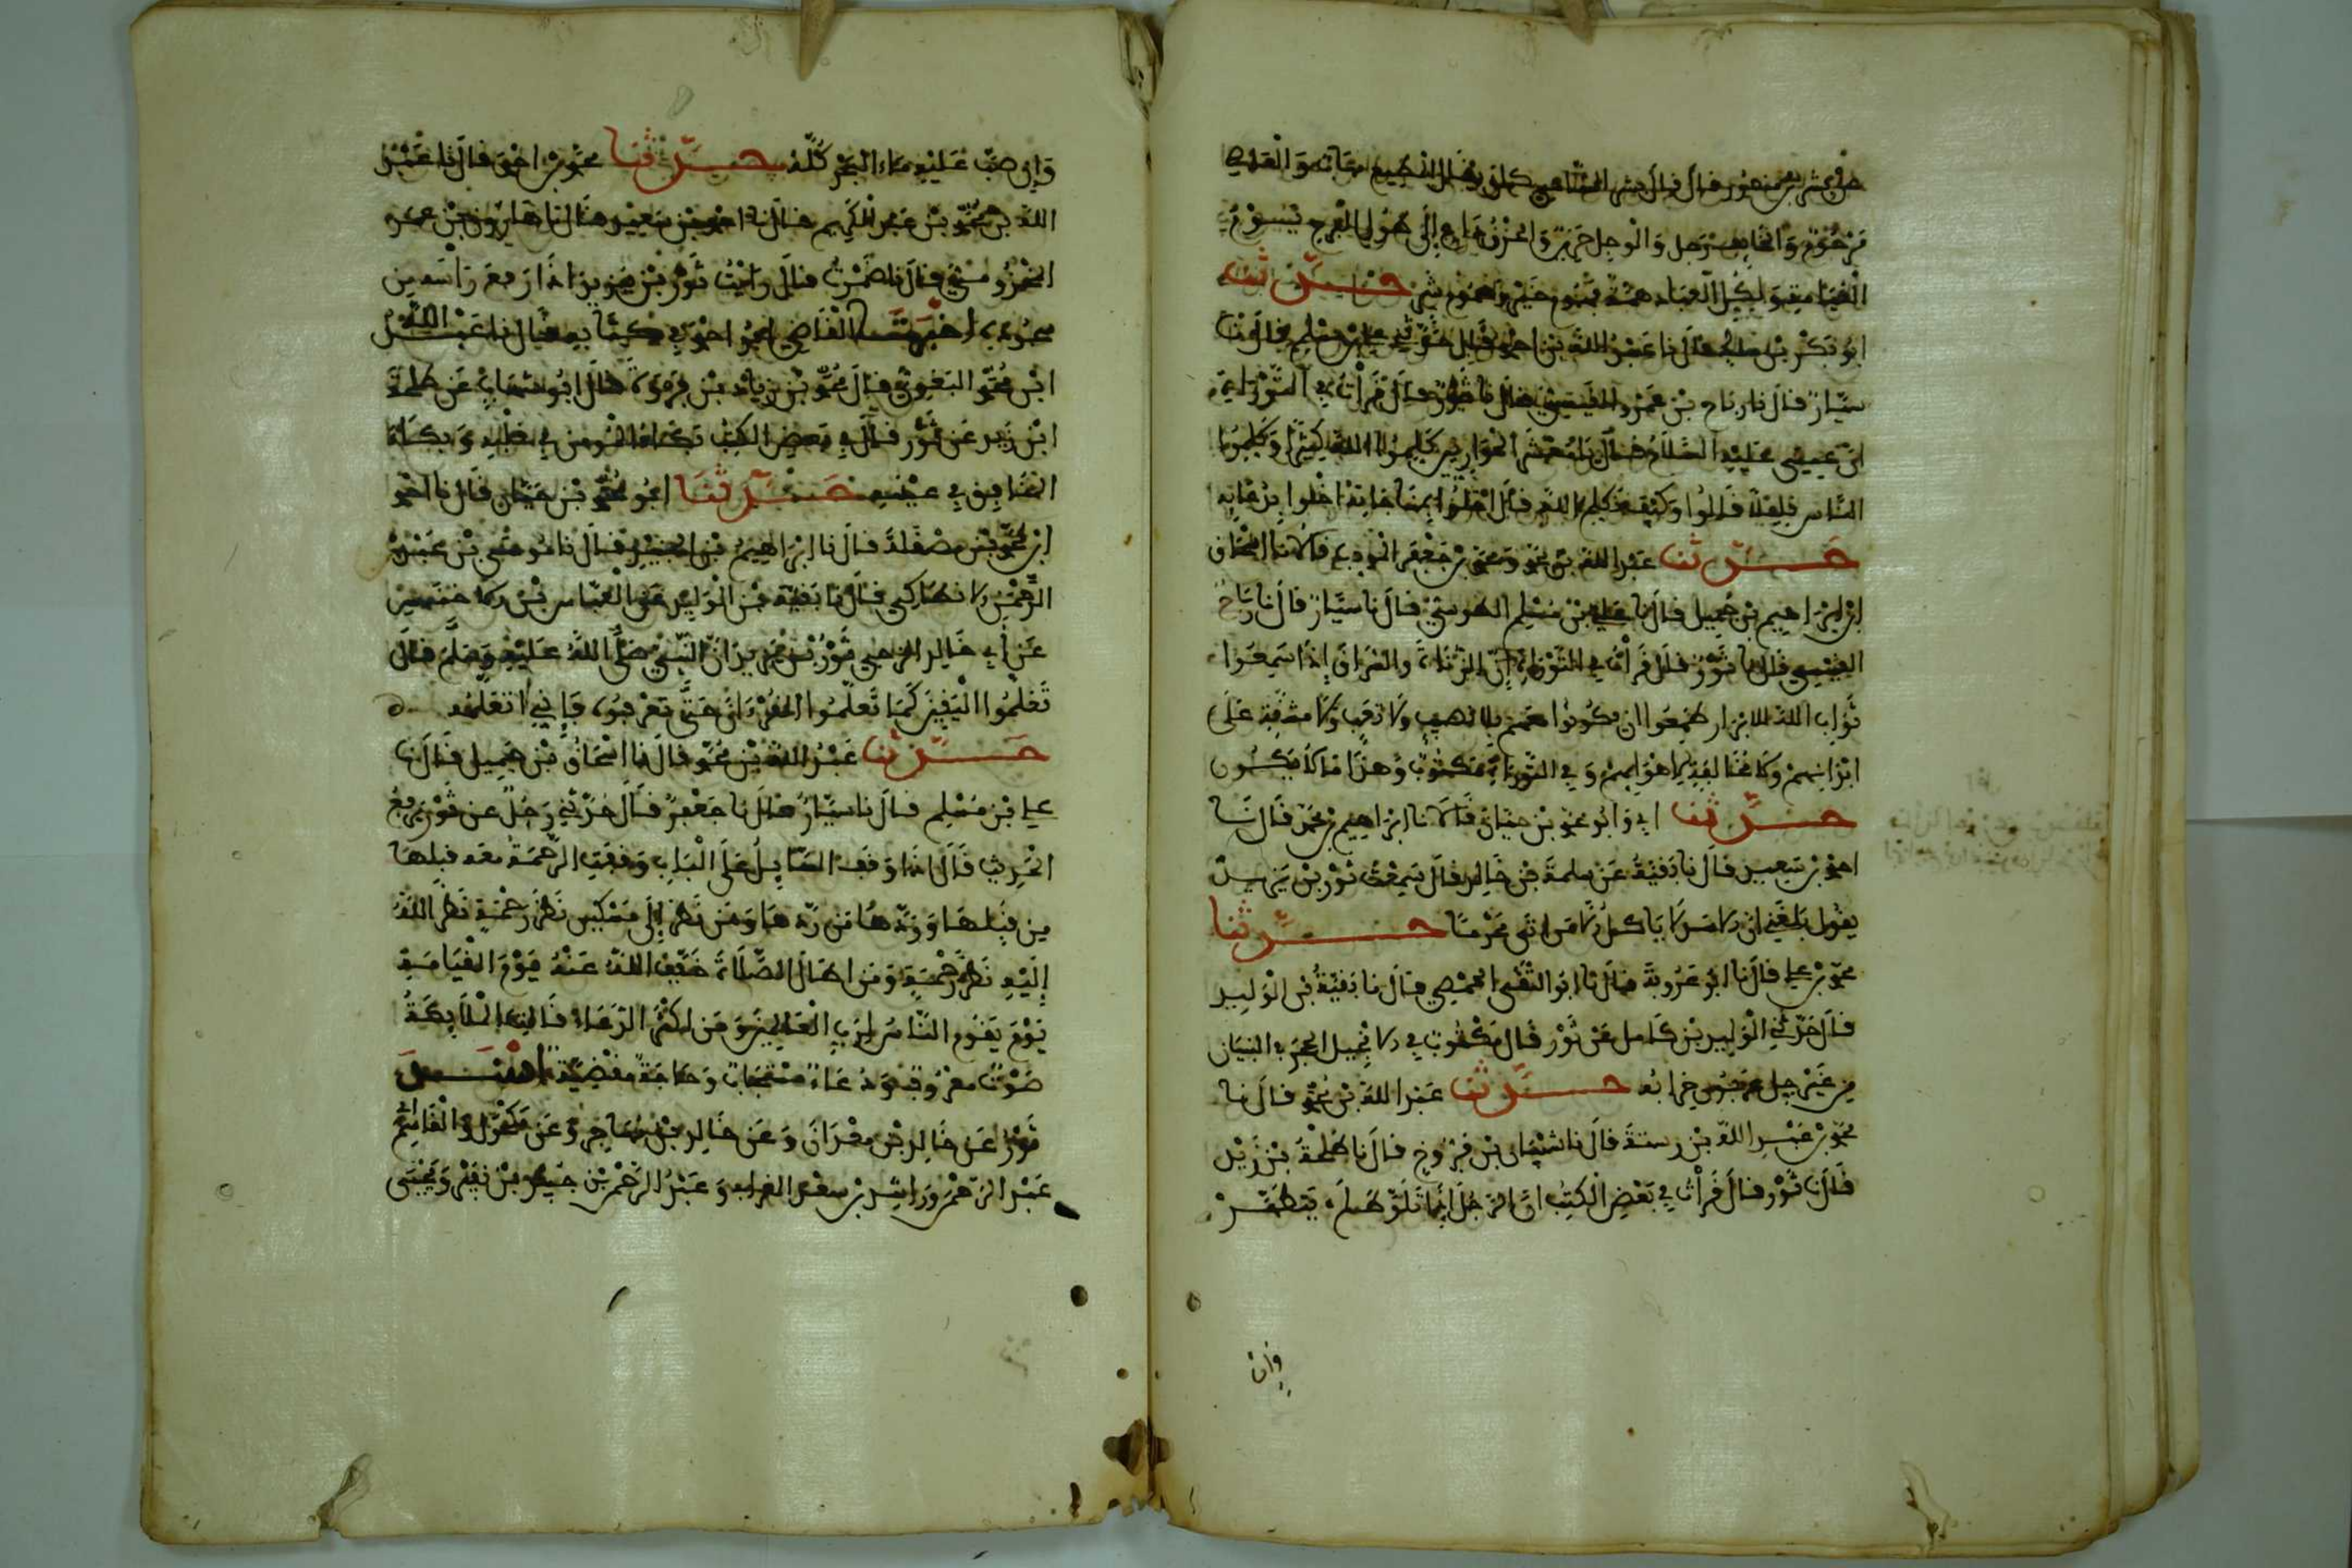 مرحوم والخايف وجل والوجل حزين والحزن داع إلى طول الفرح يسوق
القيامة ولكل العباد همة فهموم خير وهموم شر حدثنا
ابو بكر بن مالك قال نا عبد الله بن احمد بن حنبل حدثني علي بن مسلم قال نا
سيار قال نا رياح بن عمرو القيسي قال نا ثور قال قرأت في التوراة
ان عيسى عليه السلام قال يا معشر الحواريين كلموا الله كثيرا وكلموا
الناس قليلا قالوا وكيف نكلم الله قال اخلوا بمناجاته اخلوا بدعايه
حدثنا عبد الله بن محمد ومحمد بن جعفر المودب قالا نا اسحاق
ابن ابراهيم بن جميل قال نا علي بن مسلم الطوسي قال نا سيار قال نا رياح
القيسي قال نا ثور قال قرأت في التوراة ان الزناة والسراق إذا سمعوا
ثواب الله للابرار طمعوا ان يكونوا معهم بلا نصب ولا تعب ولا مشقة على
ابدانهم ولا مخالفة لاهوايهم وفي التوراة مكتوب وهذا ما لا يكون
حدثنا ابي وابو محمد بن حيان قالا نا ابراهيم بن محمد قال نا
احمد بن سعيد قال نا بقية عن سلمة بن خالد قال سمعت ثور بن يزيد
يقول بلغني ان الاسد لا ياكل الا من اتى محرما حدثنا
محمد بن علي قال نا ابو عروبة قال نا ابو التقى الحمصي قال نا بقية بن الوليد
قال حدثني الوليد بن كامل عن ثور قال مكتوب في الانجيل الحجر في البنيان
من غير حل عربون خرابه حدثنا عبد الله بن محمد قال نا
محمد بن عبد الله بن رستة قال نا شيبان بن فروخ قال نا طلحة بن زيد
قال نا ثور قال قرأت في بعض الكتب ان الرجل انما تلوط لم يتطهر
وان
وان صب عليه ماء البحر كله حدثنا محمد بن احمد قال نا عبد
الله بن محمد بن عبد الكريم قال نا احمد بن سعيد قال نا هارون بن عمر
المخزومي قال نا ضمرة قال رايت ثور بن يزيد اذا رفع راسه من
سجوده اخبرنا القاضي ابو احمد في كتابه قال نا عبد الله
ابن محمد البغوي قال محمد بن زياد بن فروة قال ابو شهاب عن طلحة
ابن زيد عن ثور قال في بعض الكتب بكاء المومن في قلبه وبكاء
المنافق في عينيه حدثنا ابو محمد بن حيان قال نا احمد
ابن محمد بن مصقلة قال نا ابراهيم بن الجنيد قال نا موسى بن عبد
الرحمن الانطاكي قال نا بقية بن الوليد عن العباس بن الاخنس
عن ابي خالد الرحبي ثور بن يزيد ان النبي صلى الله عليه وسلم قال
تعلموا اليقين كما تعلموا القرءان حتى تعرفوه فإني اتعلمه
حدثنا عبد الله بن محمد قال نا اسحاق بن جميل قال نا
علي بن مسلم قال نا سيار قال نا جعفر قال حدثني رجل عن ثور يرفع
الحديث قال اذا وقف السايل على الباب وقفت الرحمة معه قبلها
من قبلها وردها من ردها ومن نظر إلى مسكين نظر رحمة نظر الله
إليه نظر رحمة ومن اطال الصلاة خفف الله عنه يوم القيامة
يوم يقوم الناس لرب العالمين ومن اكثر الدعاء قالت الملايكة
صوت معروف ودعاء مستجاب وحاجة مقضية اسند
ثور عن خالد بن معدان وعن خالد بن مهاجر وعن مكحول والقاسم ابي
عبد الرحمن وراشد بن سعد وعبد الرحمن بن جبير بن نفير ويحيى